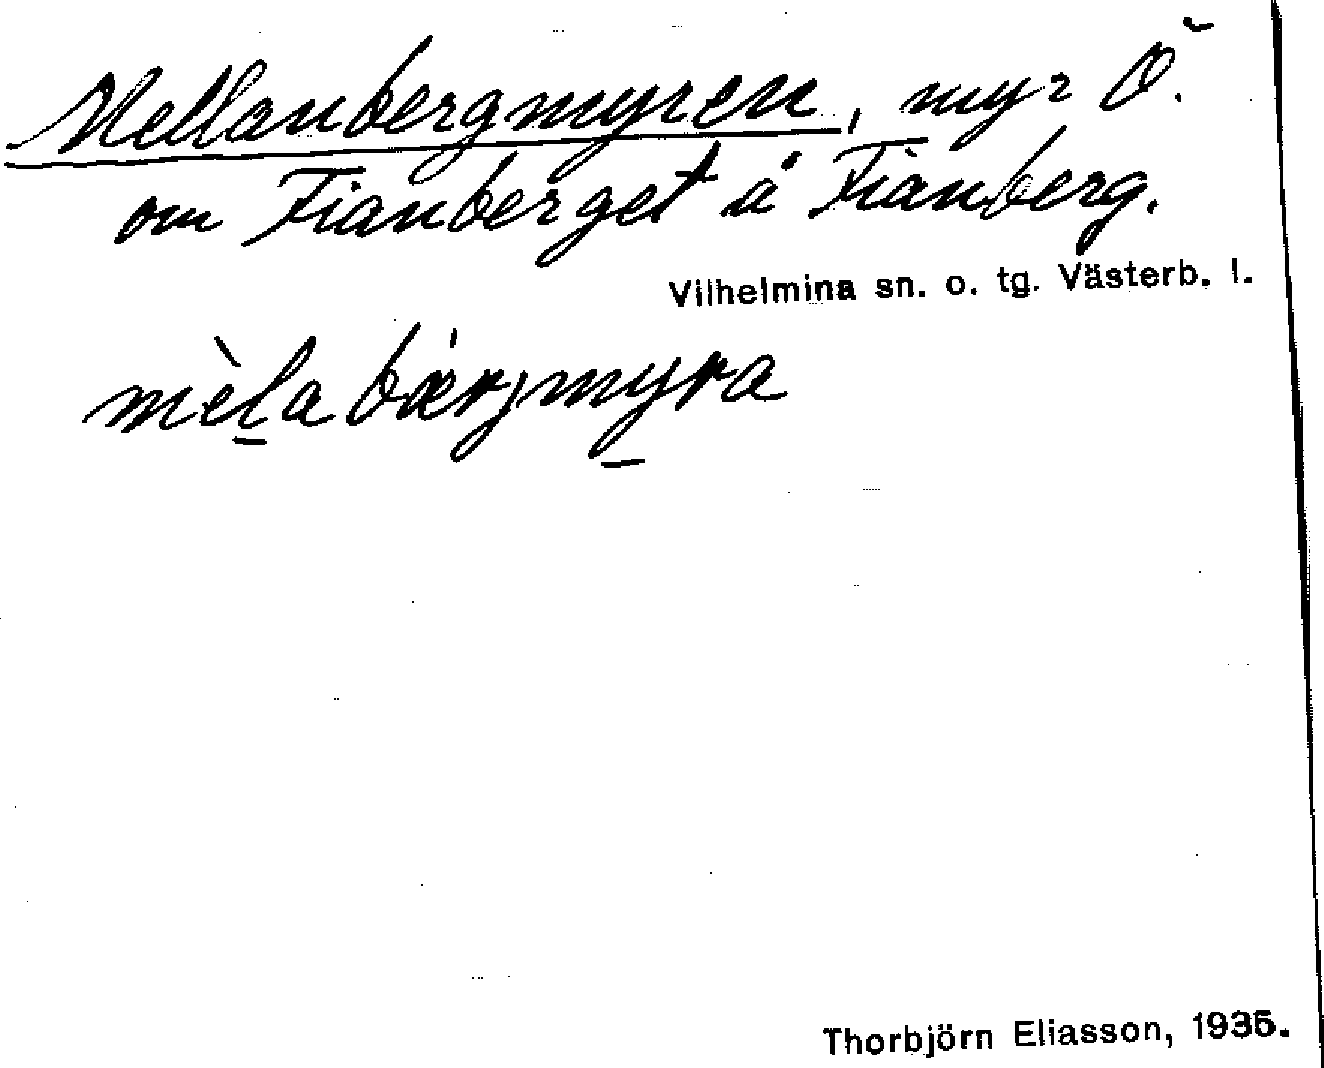 Mellanbergmyren, myr Ö.
om Fianberget å Fianberg.
Vilhelmina sn. o. tg. Västerb. l.
mèla bærjmyra
Thorbjörn Eliasson, 1935.